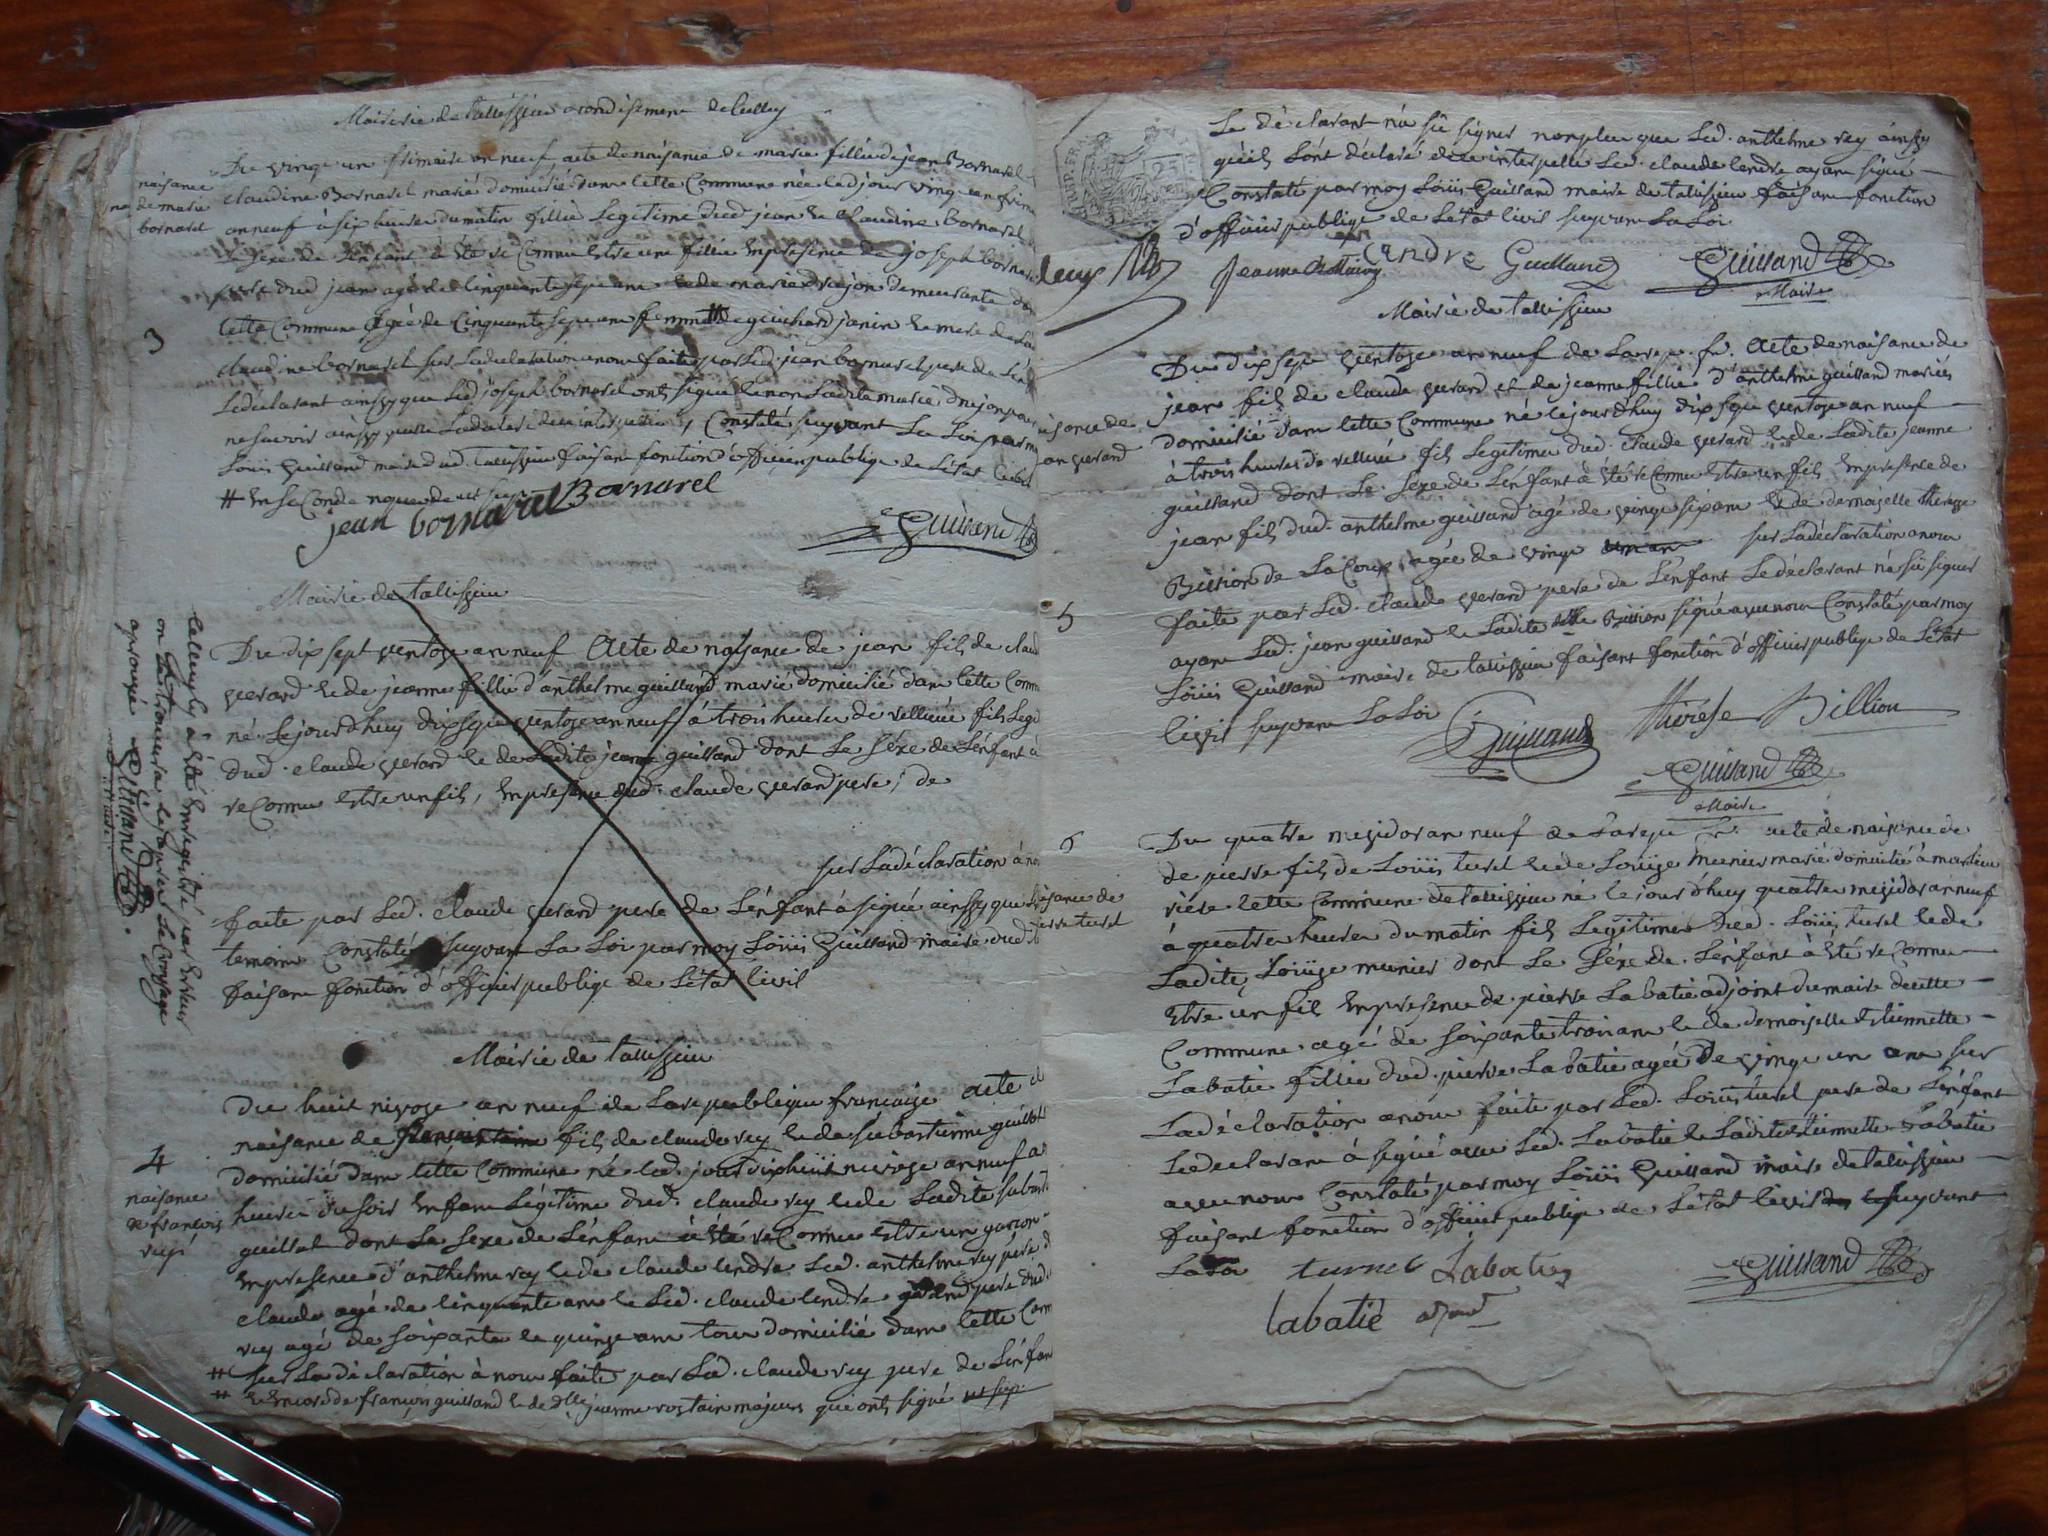 Mairie de tallissieu arondisement de belley
naisance
de marie
bornarel
3
Du vingt un frimaire an neuf acte de naisance de marie fillie de jean Bornarel
claudine Bornarel marié domicilié dans cette Commune née led jour vingt un frim
an neuf à six heures du matin fillie Legitime dud jean et Claudine bornarel
Le sexe de L'enfant à été reConnu Estre une fillie En presence de joseph borna
pere dud jean agé de cinquante sept ans et de marie drejon demeurante da
cette Commune agée de Cinquante sept ans femme de guichard janin et mere de La
claudine bornarel sur La declaration a nous faite par Led. jean bornarel pere de L'enf
Le declarant ainssy que Led joseph bornarel onts signé et non Ladite marie drejon pour
ne savoir ainssy quelle La declaré de ce interpellée, Constaté suyvant La Loi par m
Louis Guissand maire dud. tallissieu faisant fonction d'officier publique de L'état Civil
# En seConde
jean bornarel Bornarel
Guissand
Mairie de tallissieu
Du dix sept ventose an neuf Acte de naisance de jean fils de claud
verard et de jeanne fillie d'anthelme guissand marié domicilié dans cette Comm
né Le jour d'huy dix sept ventose an neuf à trois heures de rellevée fils Legi
dud. claude verard et de Ladite jeanne guissand dont Le séxe de L'énfant à
reConnu Estre un fils, En presence dud. claude verard pere; de
sur La déclaration à no
faite par Led. claude verard pere de L'énfant à signé ainssy que
temoins Constaté suyvant La Loi par moy Loüis Guissand maire dud.
faisant fonction d'officier publique de L'état Civil
celluy cy à été Enregistré par Erreur
on Le trouvera cy apres La Cinquage
aprouvé Guissand
maire
Mairie de tallissieu
4
naisance
de françois
rey
Du huit nivose an neuf de La republique française acte d
naisance de françois fils de claude rey et de sebastienne guillot
domicilié dans cette Commune né Led. jour dixhuit nivose an neuf a
heures du soir Enfant Légitime dud. claude rey et de Ladite sebasti
guillot dont Le sexe de L'énfant à été reConnu Estre un garcon
En presence d'anthelme rey et de claude Cendre Led. anthelme rey pére d
claude agé de cinquante ans et Led. claude Cendre grand pere dud.
rey agé de soixante et quinze ans tous domicilié dans Cette Com
# sur La déclaration à nous faite par Led. claude rey pere de L'énfan
# et Encore de françois guissand et de dlle jeanne rostain majeurs que onts signé
Le déclarant n'a sû signer nonplus que Led. anthelme rey ainssy
qu'éils L'ont déclaré de ce interpellé Led. claude Cendre ayant signé
Constaté par moy Loüis Guissand maire de tallissieu faisant fonction
d'officier publique de L'état Civil suyvant La Loi
Cendre Guissand Guissand
maire
Mairie de tallissieu
naisance de
jean verard
5
Du dix sept ventose an neuf de La rep. fr. Acte de naisance de
jean fils de claude verard et de jeanne fillie d'anthelme guissand mariés
domicilié dans Cette Commune né Cejourd'huy dix sept ventose an neuf
à trois heures de rellevée fils Legitime dud. claude verard et de Ladite jeanne
guissand dont Le sexe de L'énfant à été reConnu Estre un fils En presence de
jean fils dud. anthelme guissand agé de vingt six ans et de demoiselle therese
Billion de La Coux agée de vingt sur La déclaration a nous
faite par Led. claude verard pere de L'énfant Le déclarant n'a sû signer
ayant Led. jean guissand et Ladite dlle Billion signé avec nous Constaté par moy
Loüis Guissand maire de tallissieu faisant fonction d'officier publique de L'état
Civil suyvant La Loi
Guissand thérése Billion
Guissand
Maire
6
naisance de
pierre turel
Du quatre mesidor an neuf de La repu. fr. acte de naisance de
de pierre fils de Loüis turel et de Loüise munier marié domicilié à marlieu
riére Cette Commune de tallissieu né Le jour d'huy quatre mesidor an neuf
à quatre heures du matin fils Legitime dud. Loüis turel et de
Ladite Loüise munier dont Le séxe de L'énfant à été reConnu
Etre un fils En presence de pierre Labatie adjoint du maire de cette
Commune agé de soixante trois ans et de demoiselle Etiennette
Labatie fillie dud. pierre Labatie agée de vingt un ans sur
La déclaration a nous faite par Led. Louis turel pere de L'énfant
Le declarant à signé avec Led. Labatie et Ladite Etiennette Labatie
avec nous Constaté par moy Loüis Guissand maire de tallissieu
faisant fonction d'officier publique de L'état Civil suyvant
La Loi turrel Labatie Guissand
labatié adjoint